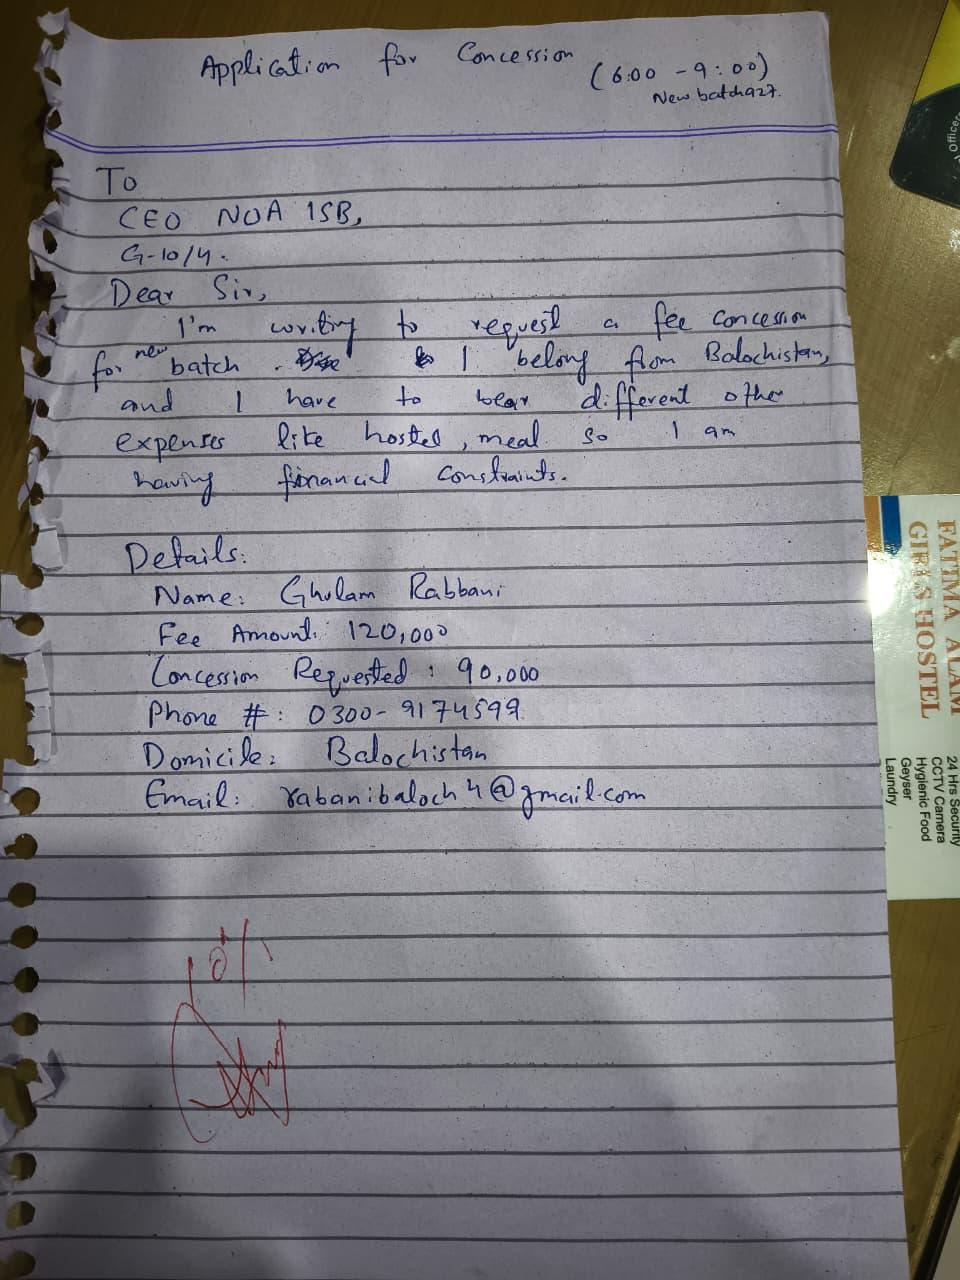 Application for Concession
(6:00 - 9:00)
New batch 927.
To
CEO NOA ISB,
G-10/4.
Dear Sir,
I'm writing to request a fee concession
for new batch. I belong from Balochistan,
and I have to bear different other
expenses like hostel, meal so I am
having financial constraints.
Details:
Name: Ghulam Rabbani
Fee Amount: 120,000
Concession Requested: 90,000
Phone #: 0300-9174599
Domicile: Balochistan
Email: rabanibaloch4@gmail.com
10%
Officers
FATIMA ALAM
GIRLS HOSTEL
24 Hrs Security
CCTV Camera
Hygienic Food
Geyser
Laundry